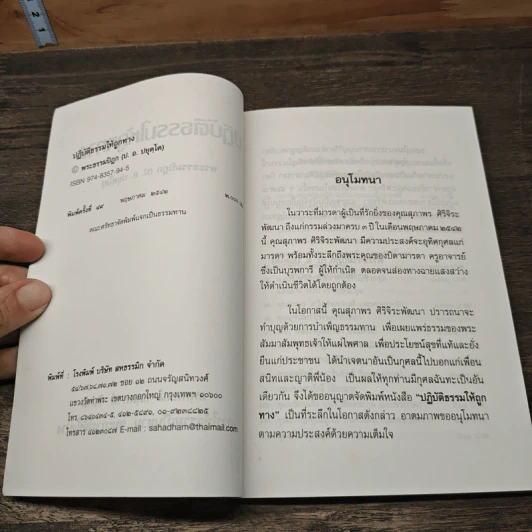 ปฏิบัติธรรมให้ถูกทาง
© พระธรรมปิฎก (ป. อ. ปยุตฺโต)
ISBN 974-8357-94-5
พิมพ์ครั้งที่ ๔๙ พฤษภาคม ๒๕๔๒
คณะศรัทธาจัดพิมพ์แจกเป็นธรรมทาน
พิมพ์ที่ : โรงพิมพ์ บริษัท สหธรรมิก จำกัด
ซอย ๑๒ ถนนจรัญสนิทวงศ์
แขวงวัดท่าพระ เขตบางกอกใหญ่ กรุงเทพฯ ๑๐๖๐๐
โทร.
โทรสาร E-mail : sahadham@thaimail.com
อนุโมทนา
ในวาระที่มารดาผู้เป็นที่รักยิ่งของคุณสุภาพร ศิริจิระ
พัฒนา ถึงแก่กรรมล่วงมาครบ ๓ ปี ในเดือนพฤษภาคม ๒๕๔๒
นี้ คุณสุภาพร ศิริจิระพัฒนา มีความประสงค์จะอุทิศกุศลแก่
มารดา พร้อมทั้งระลึกถึงพระคุณของบิดามารดา ครูอาจารย์
ซึ่งเป็นบุรพการี ผู้ให้กำเนิด ตลอดจนส่องทางฉายแสงสว่าง
ให้ดำเนินชีวิตได้โดยถูกต้อง
ในโอกาสนี้ คุณสุภาพร ศิริจิระพัฒนา ปรารถนาจะ
ทำบุญด้วยการบำเพ็ญธรรมทาน เพื่อเผยแพร่ธรรมของพระ
สัมมาสัมพุทธเจ้าให้แผ่ไพศาล เพื่อประโยชน์สุขที่แท้และยั่ง
ยืนแก่ประชาชน ได้นำเจตนาอันเป็นกุศลนี้ไปบอกแก่เพื่อน
สนิทและญาติพี่น้อง เป็นผลให้ทุกท่านมีกุศลฉันทะเป็นอัน
เดียวกัน จึงได้ขออนุญาตจัดพิมพ์หนังสือ “ปฏิบัติธรรมให้ถูก
ทาง” เป็นที่ระลึกในโอกาสดังกล่าว อาตมภาพขออนุโมทนา
ตามความประสงค์ด้วยความเต็มใจ